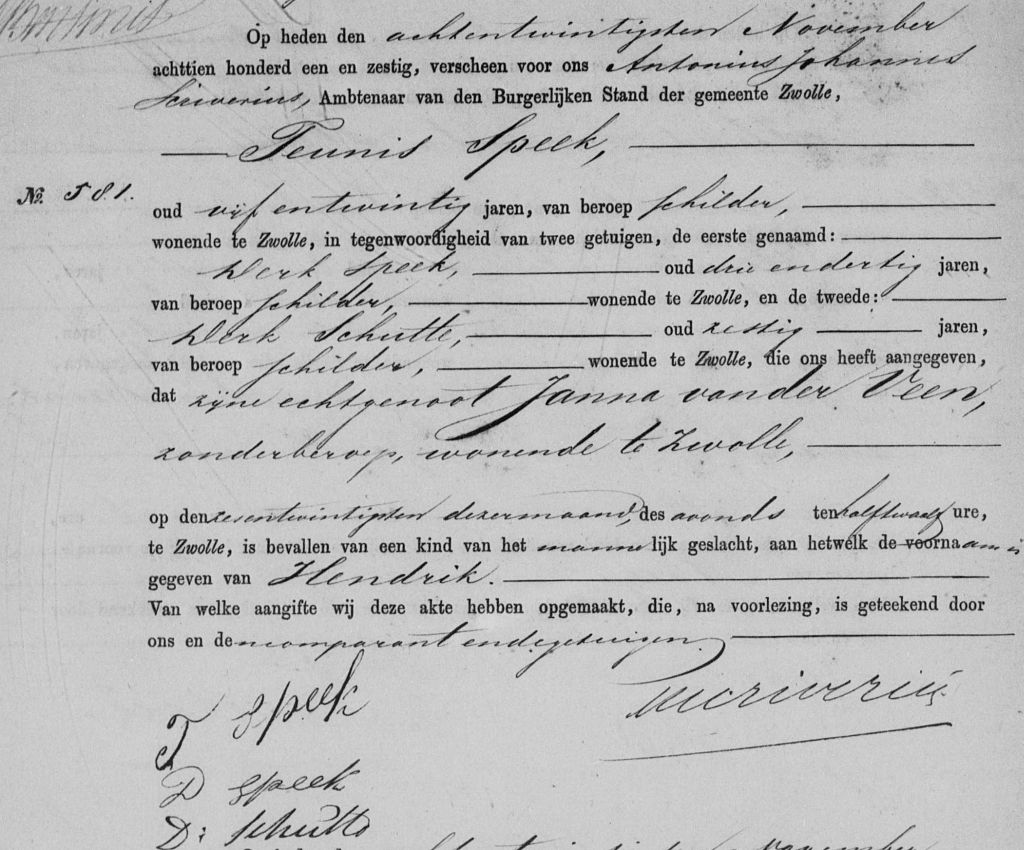 Op heden den achtentwintigsten November
achttien honderd een en zestig, verscheen voor ons Antonius Johannes
Scriverius, Ambtenaar van den Burgerlijken Stand der gemeente Zwolle,
Teunis Speek,
No. 581.
oud vijf entwintig jaren, van beroep schilder,
wonende te Zwolle, in tegenwoordigheid van twee getuigen, de eerste genaamd:
Derk Speek, oud drie endertig jaren,
van beroep schilder, wonende te Zwolle, en de tweede:
Derk Schutte, oud zestig jaren,
van beroep schilder, wonende te Zwolle, die ons heeft aangegeven,
dat zijne echtgenoot Janna vander Veen,
zonderberoep, wonende te Zwolle,
op den zesentwintigsten dezermaand, des avonds ten halftwaalf ure,
te Zwolle, is bevallen van een kind van het mannelijk geslacht, aan hetwelk de voornaam is
gegeven van Hendrik.
Van welke aangifte wij deze akte hebben opgemaakt, die, na voorlezing, is geteekend door
ons en den comparant endegetuigen.
T Speek
Scriverius
D Speek
D: Schutte